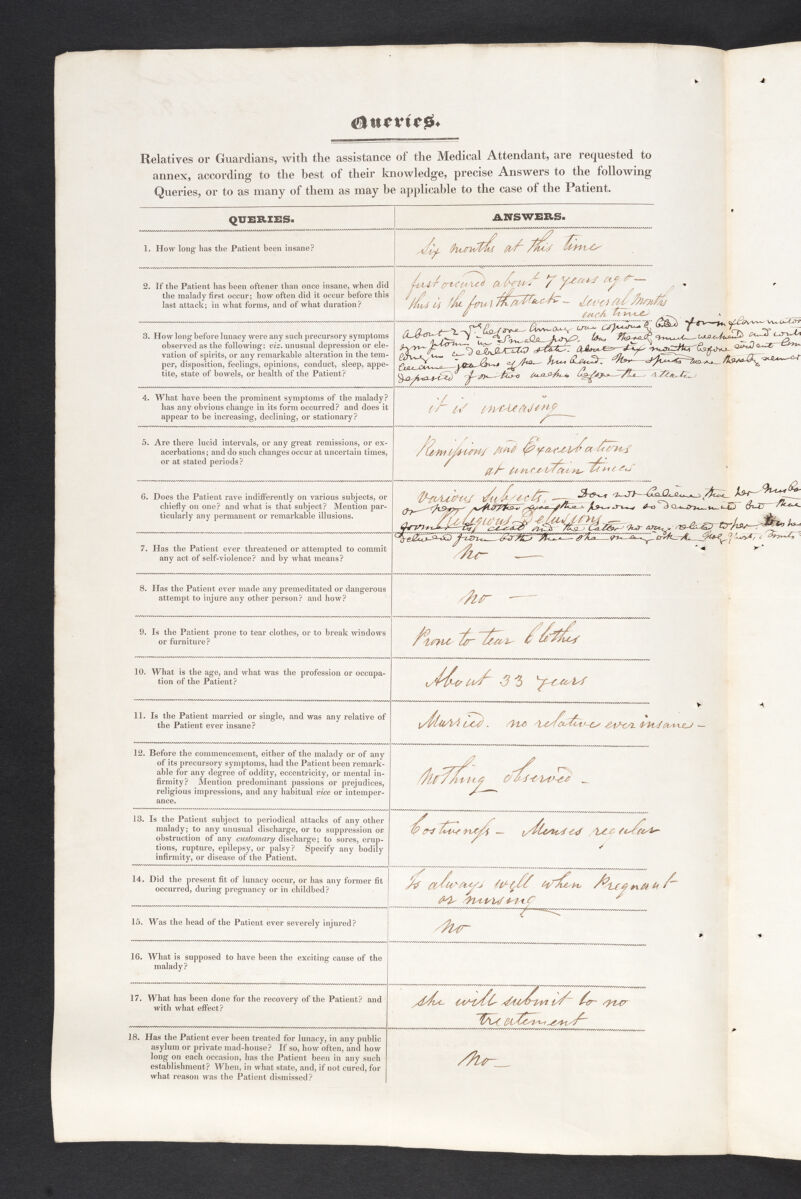 Queries.
Relatives or Guardians, with the assistance of the Medical Attendant, are requested to
annex, according to the best of their knowledge, precise Answers to the following
Queries, or to as many of them as may be applicable to the case of the Patient.
QUERIES.
ANSWERS.
1. How long has the Patient been insane?
Six months at this time
2. If the Patient has been oftener than once insane, when did
the malady first occur; how often did it occur before this
last attack; in what forms, and of what duration?
first occured about 7 years ago —
this is the fourth attack — several months
each time
3. How long before lunacy were any such precursory symptoms
observed as the following: viz. unusual depression or ele-
vation of spirits, or any remarkable alteration in the tem-
per, disposition, feelings, opinions, conduct, sleep, appe-
tite, state of bowels, or health of the Patient?
About 2 before lunacy was copiously bled for inflammatory
symptoms in small pox. was thereby much weakened and
long in a debilitated state. about six months before evident
became jealous of her husband. Her spirits were thereby
depressed for two weeks before the attack
4. What have been the prominent symptoms of the malady?
has any obvious change in its form occurred? and does it
appear to be increasing, declining, or stationary?
it is increasing
5. Are there lucid intervals, or any great remissions, or ex-
acerbations; and do such changes occur at uncertain times,
or at stated periods?
Remissions and Exacerbations
at uncertain times
6. Does the Patient rave indifferently on various subjects, or
chiefly on one? and what is that subject? Mention par-
ticularly any permanent or remarkable illusions.
Various Subjects. — Does not believe that her
or her Mother are the persons so denominated but that
Religious Delusions
and the latter no way related to her
from both that she
7. Has the Patient ever threatened or attempted to commit
any act of self-violence? and by what means?
No —
8. Has the Patient ever made any premeditated or dangerous
attempt to injure any other person? and how?
No —
9. Is the Patient prone to tear clothes, or to break windows
or furniture?
Prone to tear Clothes
10. What is the age, and what was the profession or occupa-
tion of the Patient?
About 33 years
11. Is the Patient married or single, and was any relative of
the Patient ever insane?
Married. no relative ever insane —
12. Before the commencement, either of the malady or of any
of its precursory symptoms, had the Patient been remark-
able for any degree of oddity, eccentricity, or mental in-
firmity? Mention predominant passions or prejudices,
religious impressions, and any habitual vice or intemper-
ance.
Nothing observed —
13. Is the Patient subject to periodical attacks of any other
malady; to any unusual discharge, or to suppression or
obstruction of any customary discharge; to sores, erup-
tions, rupture, epilepsy, or palsy? Specify any bodily
infirmity, or disease of the Patient.
Costiveness — Menses regular
14. Did the present fit of lunacy occur, or has any former fit
occurred, during pregnancy or in childbed?
Is always well when Pregnant
or nursing
15. Was the head of the Patient ever severely injured?
No
16. What is supposed to have been the exciting cause of the
malady?
17. What has been done for the recovery of the Patient? and
with what effect?
she will submit to no
treatement
18. Has the Patient ever been treated for lunacy, in any public
asylum or private mad-house? If so, how often, and how
long on each occasion, has the Patient been in any such
establishment? When, in what state, and, if not cured, for
what reason was the Patient dismissed?
No —